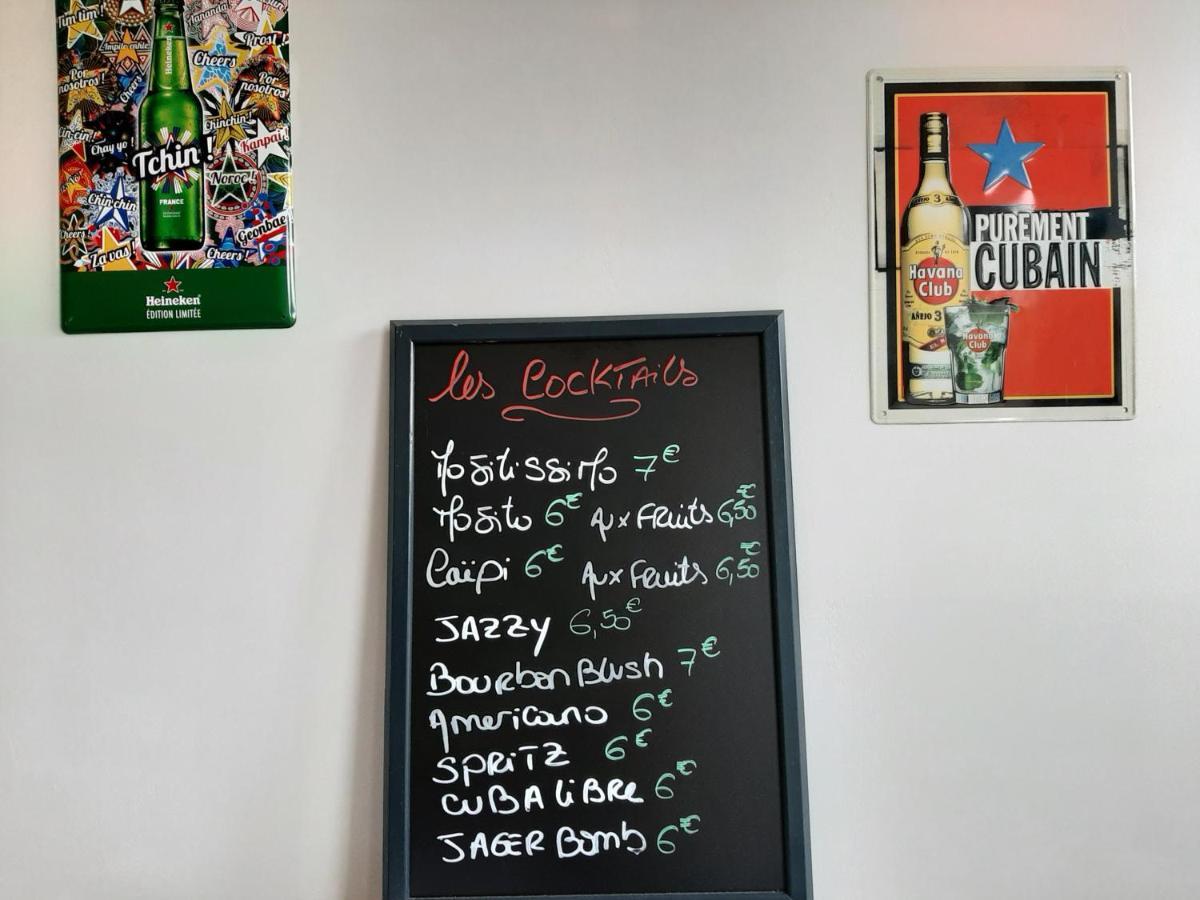 Tim tim!
Ampile enkle
Prost!
Cheers
Por nosotros!
Cheers
Por nosotros!
Chinchin!
Kanpai!
Chay yo!
Heineken
Tchin!
Noroc!
FRANCE
Chin chin
Geonbae
Cheers!
Za vas!
Cheers!
Heineken
ÉDITION LIMITÉE
AÑEJO 3
PUREMENT
CUBAIN
Havana
Club
AÑEJO 3
Havana
Club
les COCKTAils
Mojitissimo 7€
Mojito 6€ Aux Fruits 6,50€
Caïpi 6€ Aux Fruits 6,50€
JAZZY 6,50€
Bourbon Blush 7€
Americano 6€
SPRiTZ 6€
CUBA LiBRE 6€
JAGER Bomb 6€